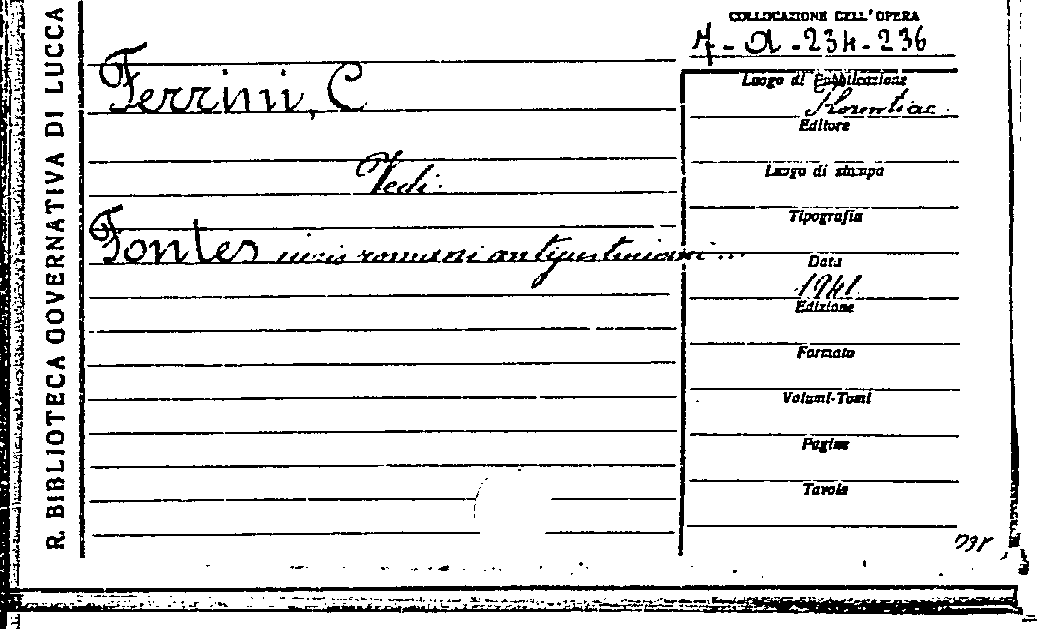 R. BIBLIOTECA GOVERNATIVA DI LUCCA
COLLOCAZIONE DELL'OPERA
7-a-234-236
Ferrini, C
Vedi:
Fontes iuris romani antejustiniani...
Luogo di Pubblicazione
Florentiae
Editore
Luogo di stampa
Tipografia
Data
1941
Edizione
Formato
Volumi-Tomi
Pagine
Tavole